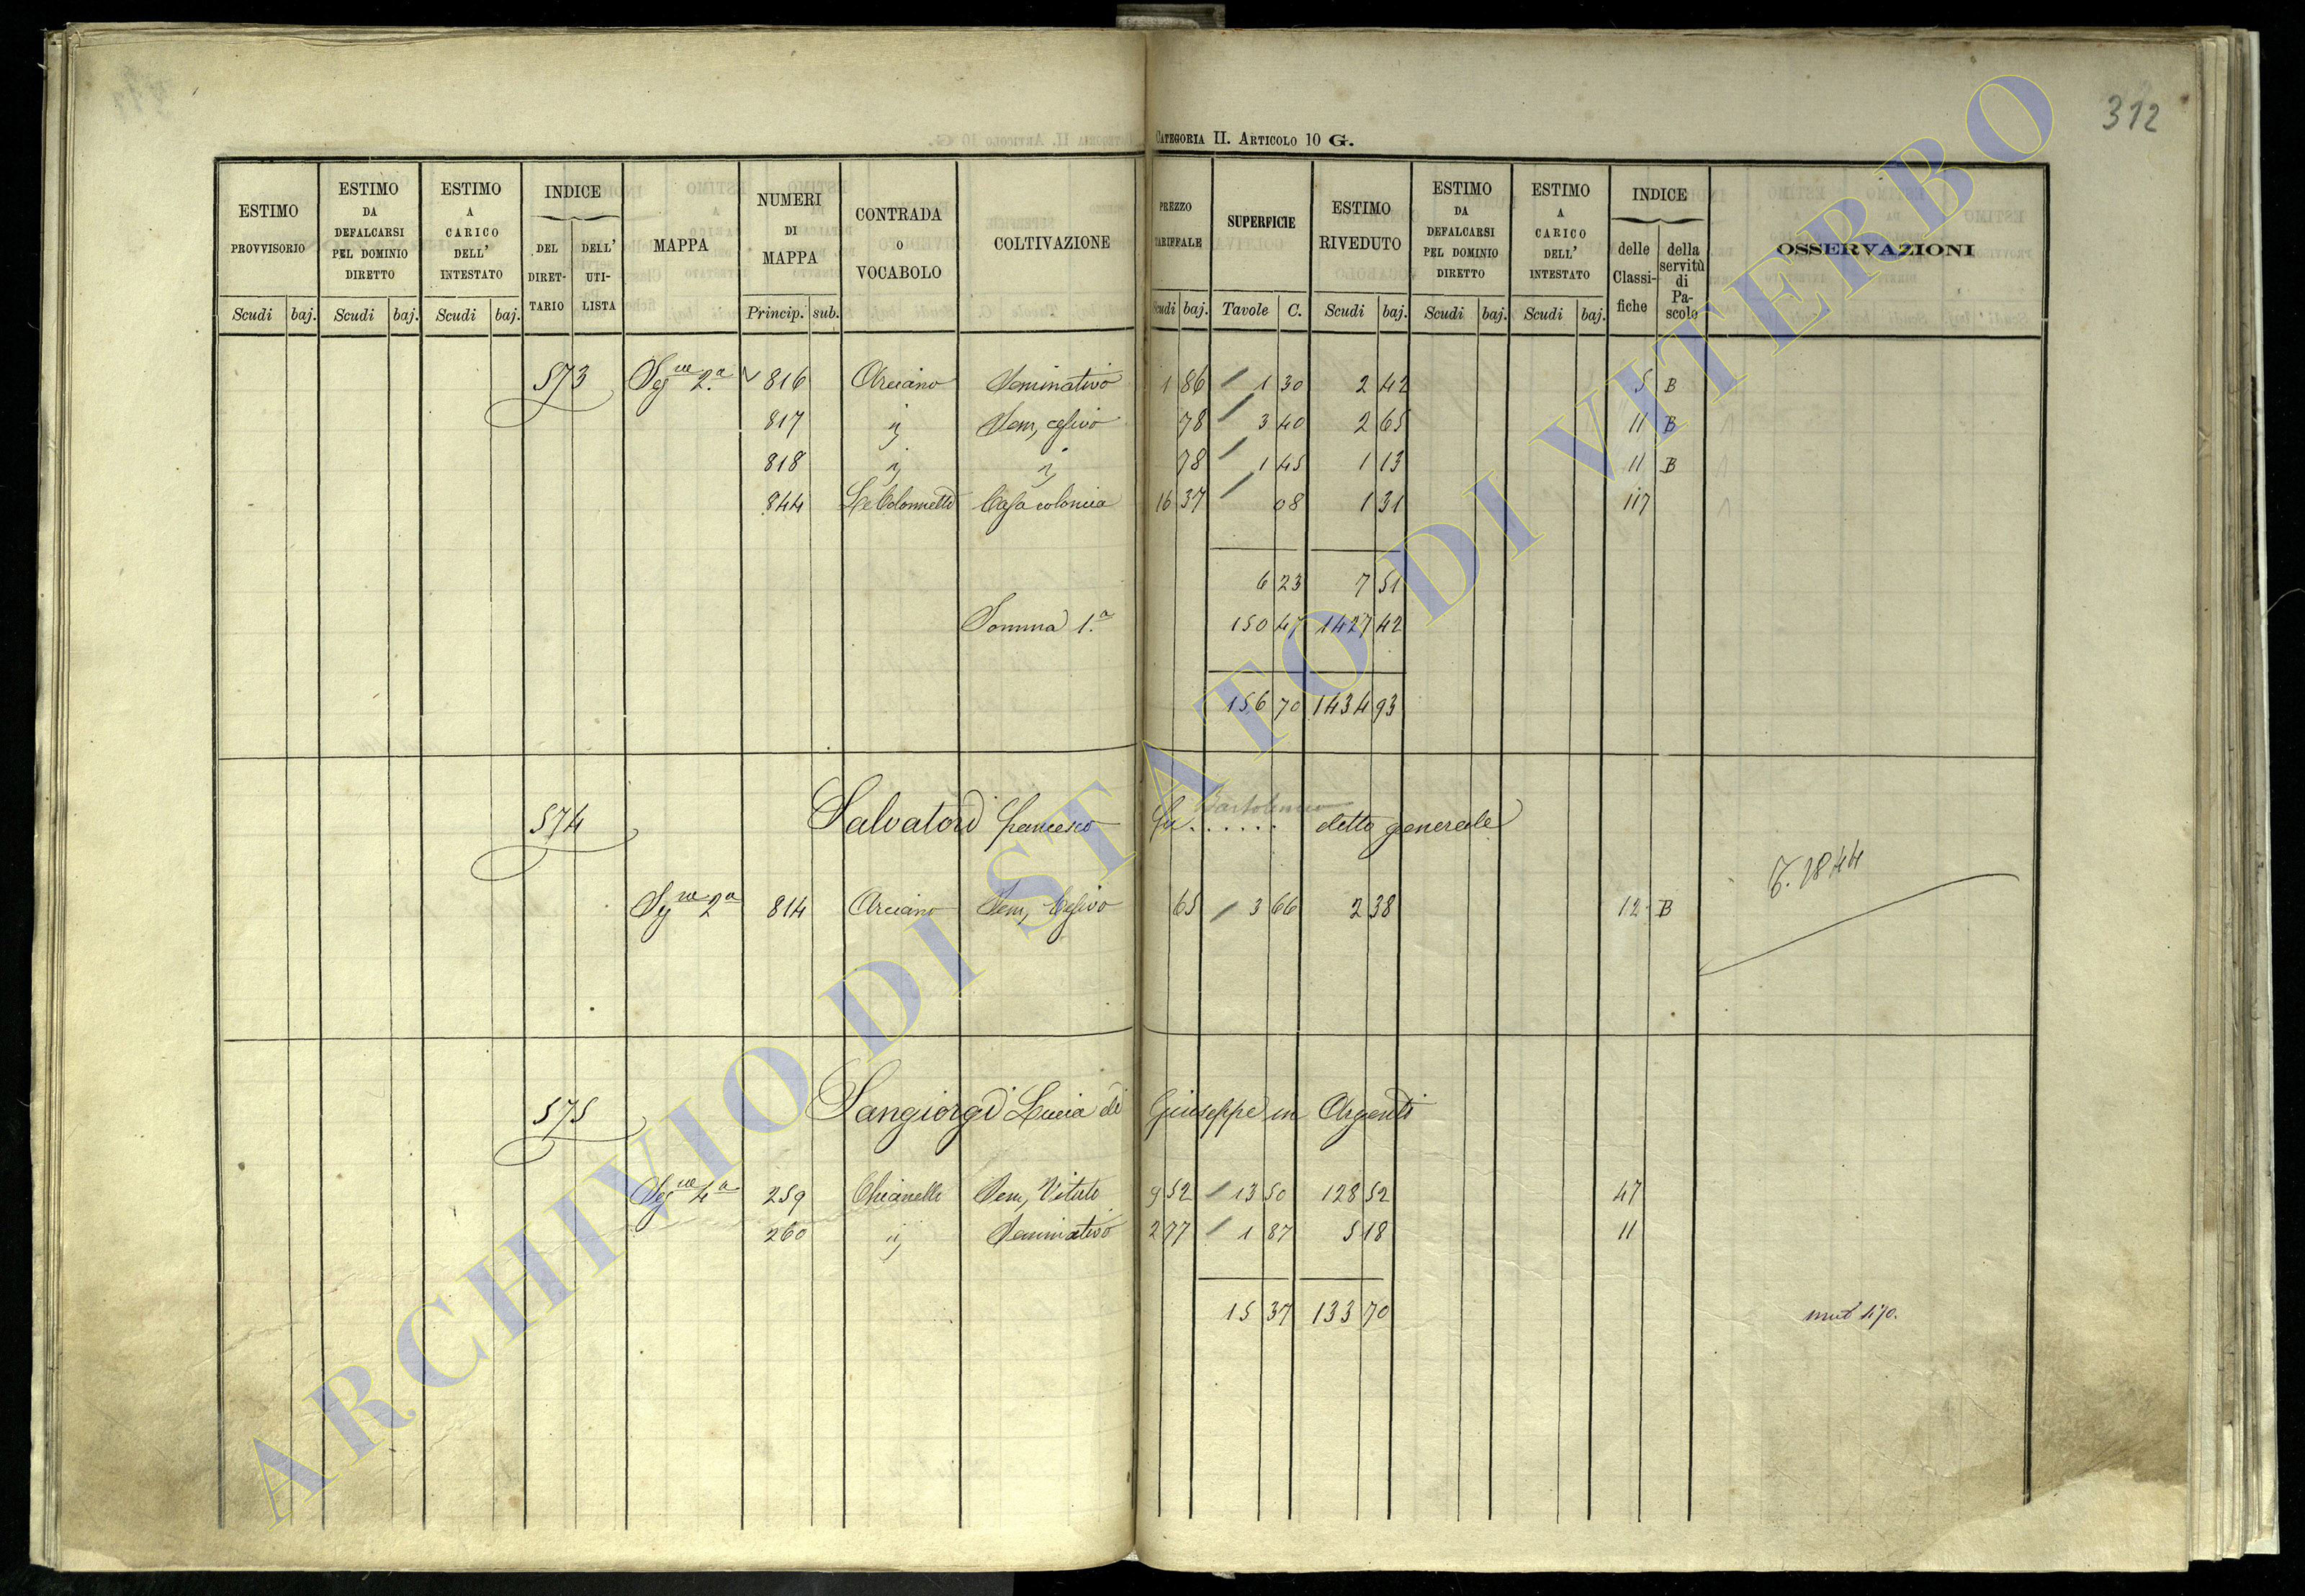 312
CATEGORIA II. ARTICOLO 10 G.
ESTIMO PROVVISORIO Scudi baj.
ESTIMO DA DEFALCARSI PEL DOMINIO DIRETTO Scudi baj.
ESTIMO A CARICO DELL' INTESTATO Scudi baj.
INDICE DEL DIRETTARIO DELL' UTILISTA
MAPPA
NUMERI DI MAPPA Princip. sub.
CONTRADA O VOCABOLO
COLTIVAZIONE
PREZZO TARIFFALE Scudi baj.
SUPERFICIE Tavole C.
ESTIMO RIVEDUTO Scudi baj.
ESTIMO DA DEFALCARSI PEL DOMINIO DIRETTO Scudi baj.
ESTIMO A CARICO DELL' INTESTATO Scudi baj.
INDICE delle Classifiche della servitù di Pascolo
OSSERVAZIONI
573 Segue 2.a 816 Arciano Seminativo 1 86 1 30 2 42 5 B
817 " Sem, cesivo 78 3 40 2 65 11 B
818 " " 78 1 45 1 13 11 B
844 Le Colonnette Casa colonica 16 37 08 1 31 117
6 23 7 51
Somma 1.a 150 47 1427 42
156 70 1434 93
Bartolomeo
574 Salvatori Francesco fu ...... detto generale
1844
Segue 2a 814 Arciano Sem, Cesivo 65 3 66 2 38 12 B
575 Sangiorgi Lucia di Giuseppe in Argenti
Segue 4a 259 Chianelle Sem, Vitato 9 52 13 50 128 52 47
260 " Seminativo 2 77 1 87 5 18 11
15 37 133 70 mut 470.
ARCHIVIO DI STATO DI VITERBO